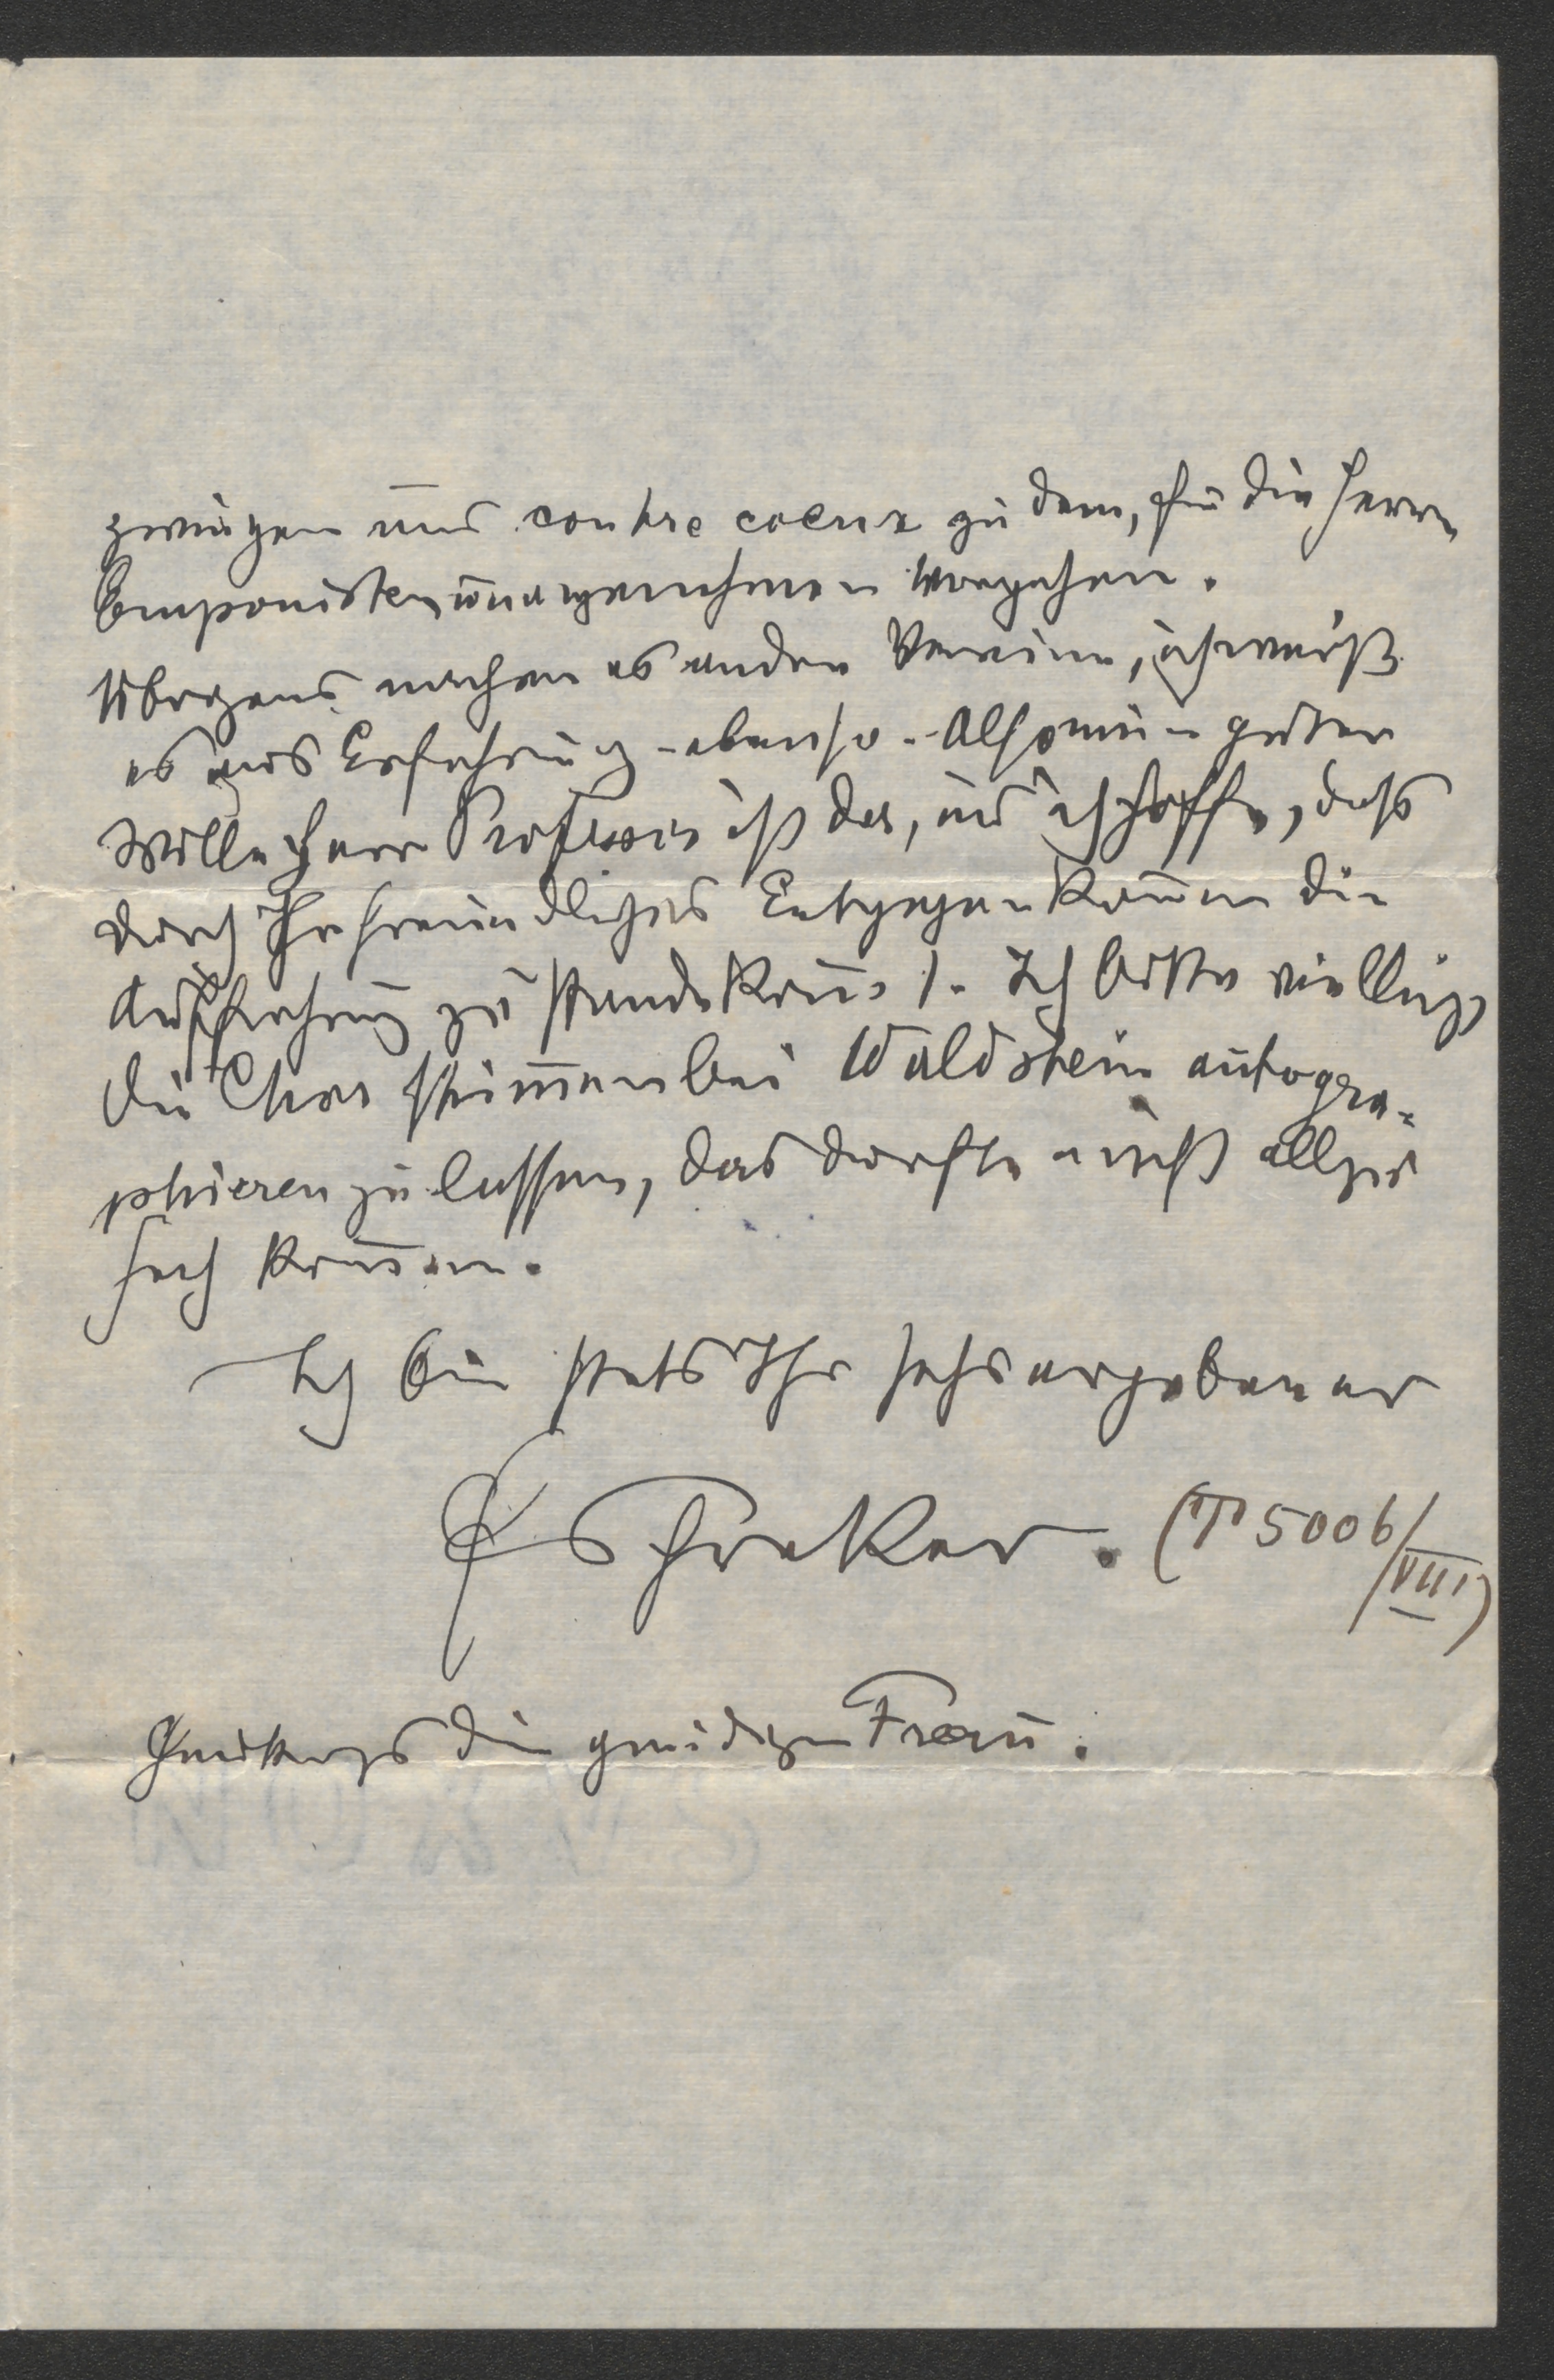 zwingen uns contre coeur zu dem, für die Herrn
Componisten unangenehmen Vorgehen.
Übrigens machen es andere Vereine, ich weiß
es aus Erfahrung - ebenso. - Also mein guter
Wille Herr Professor ist da, und ich hoffe, daß
durch Ihr freundliches Entgegenkom̅en die
Aufführung zu stande kom̅t. Ich bitte vielleicht
die Chorstim̅en bei Waldstein autogra-
phieren zu lassen, das dürfte nicht allzu
hoch kom̅en.
Ich bin stets Ihr sehr ergebener
FSchreker. (T 5006/
VIII)
Handkuss die gnädigen Frau.